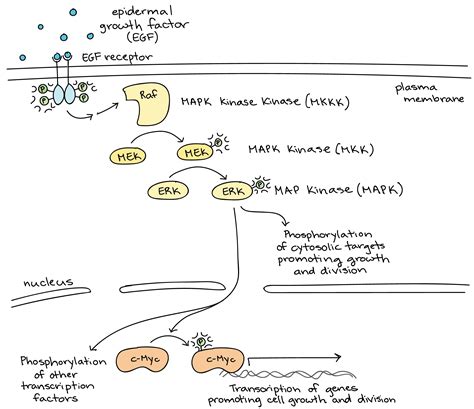 epidermal
growth factor
(EGF)
EGF receptor
plasma
membrane
P P
P P
P P
Raf
MAPK Kinase Kinase (MKKK)
MEK
MEK
P
MAPK Kinase (MKK)
ERK
ERK
P
MAP Kinase (MAPK)
Phosphorylation
of cytosolic targets
promoting growth
and division
nucleus
Phosphorylation
of other
transcription
factors
c-Myc
P
c-Myc
Transcription of genes
promoting cell growth and division